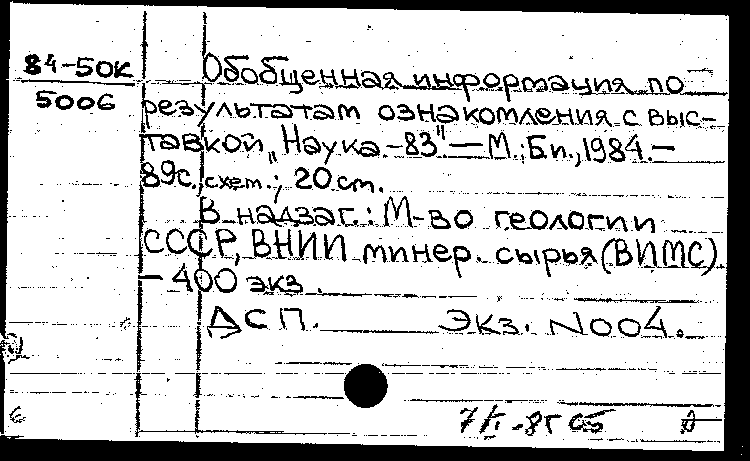 84-50К
5006
Обобщенная информация по
результатам ознакомления с выс-
тавкой „Наука-83"—М.:Б.и.,1984.—
89с.,схем.; 20 cm.
В надзаг.: М-во геологии
СССР, ВНИИ минер. сырья (ВИМС)
- 400 экз.
ДСП. Экз. N004.